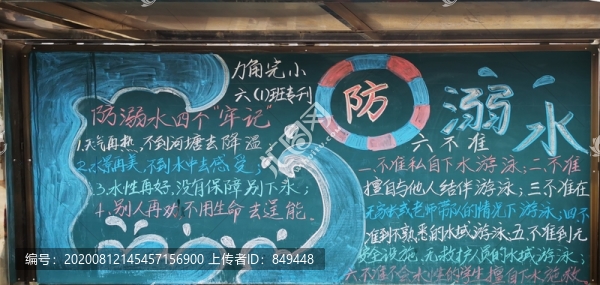 力角完小
六(1)班专刊
防溺水四个"牢记"
1.天气再热,不到河塘去降温
2.水景再美,不到水中去感受;
3.水性再好,没有保障别下水;
4.别人再劝,不用生命去逞能.
防溺水
六不准
一.不准私自下水游泳;二.不准
擅自与他人结伴游泳;三不准在
无家长或老师带队的情况下游泳;四不
准到不熟悉的水域游泳;五.不准到无
安全设施、无救护人员的水域游泳;
六不准不会水性的学生擅自下水施救.
编号:20200812145457156900 上传者ID:849448